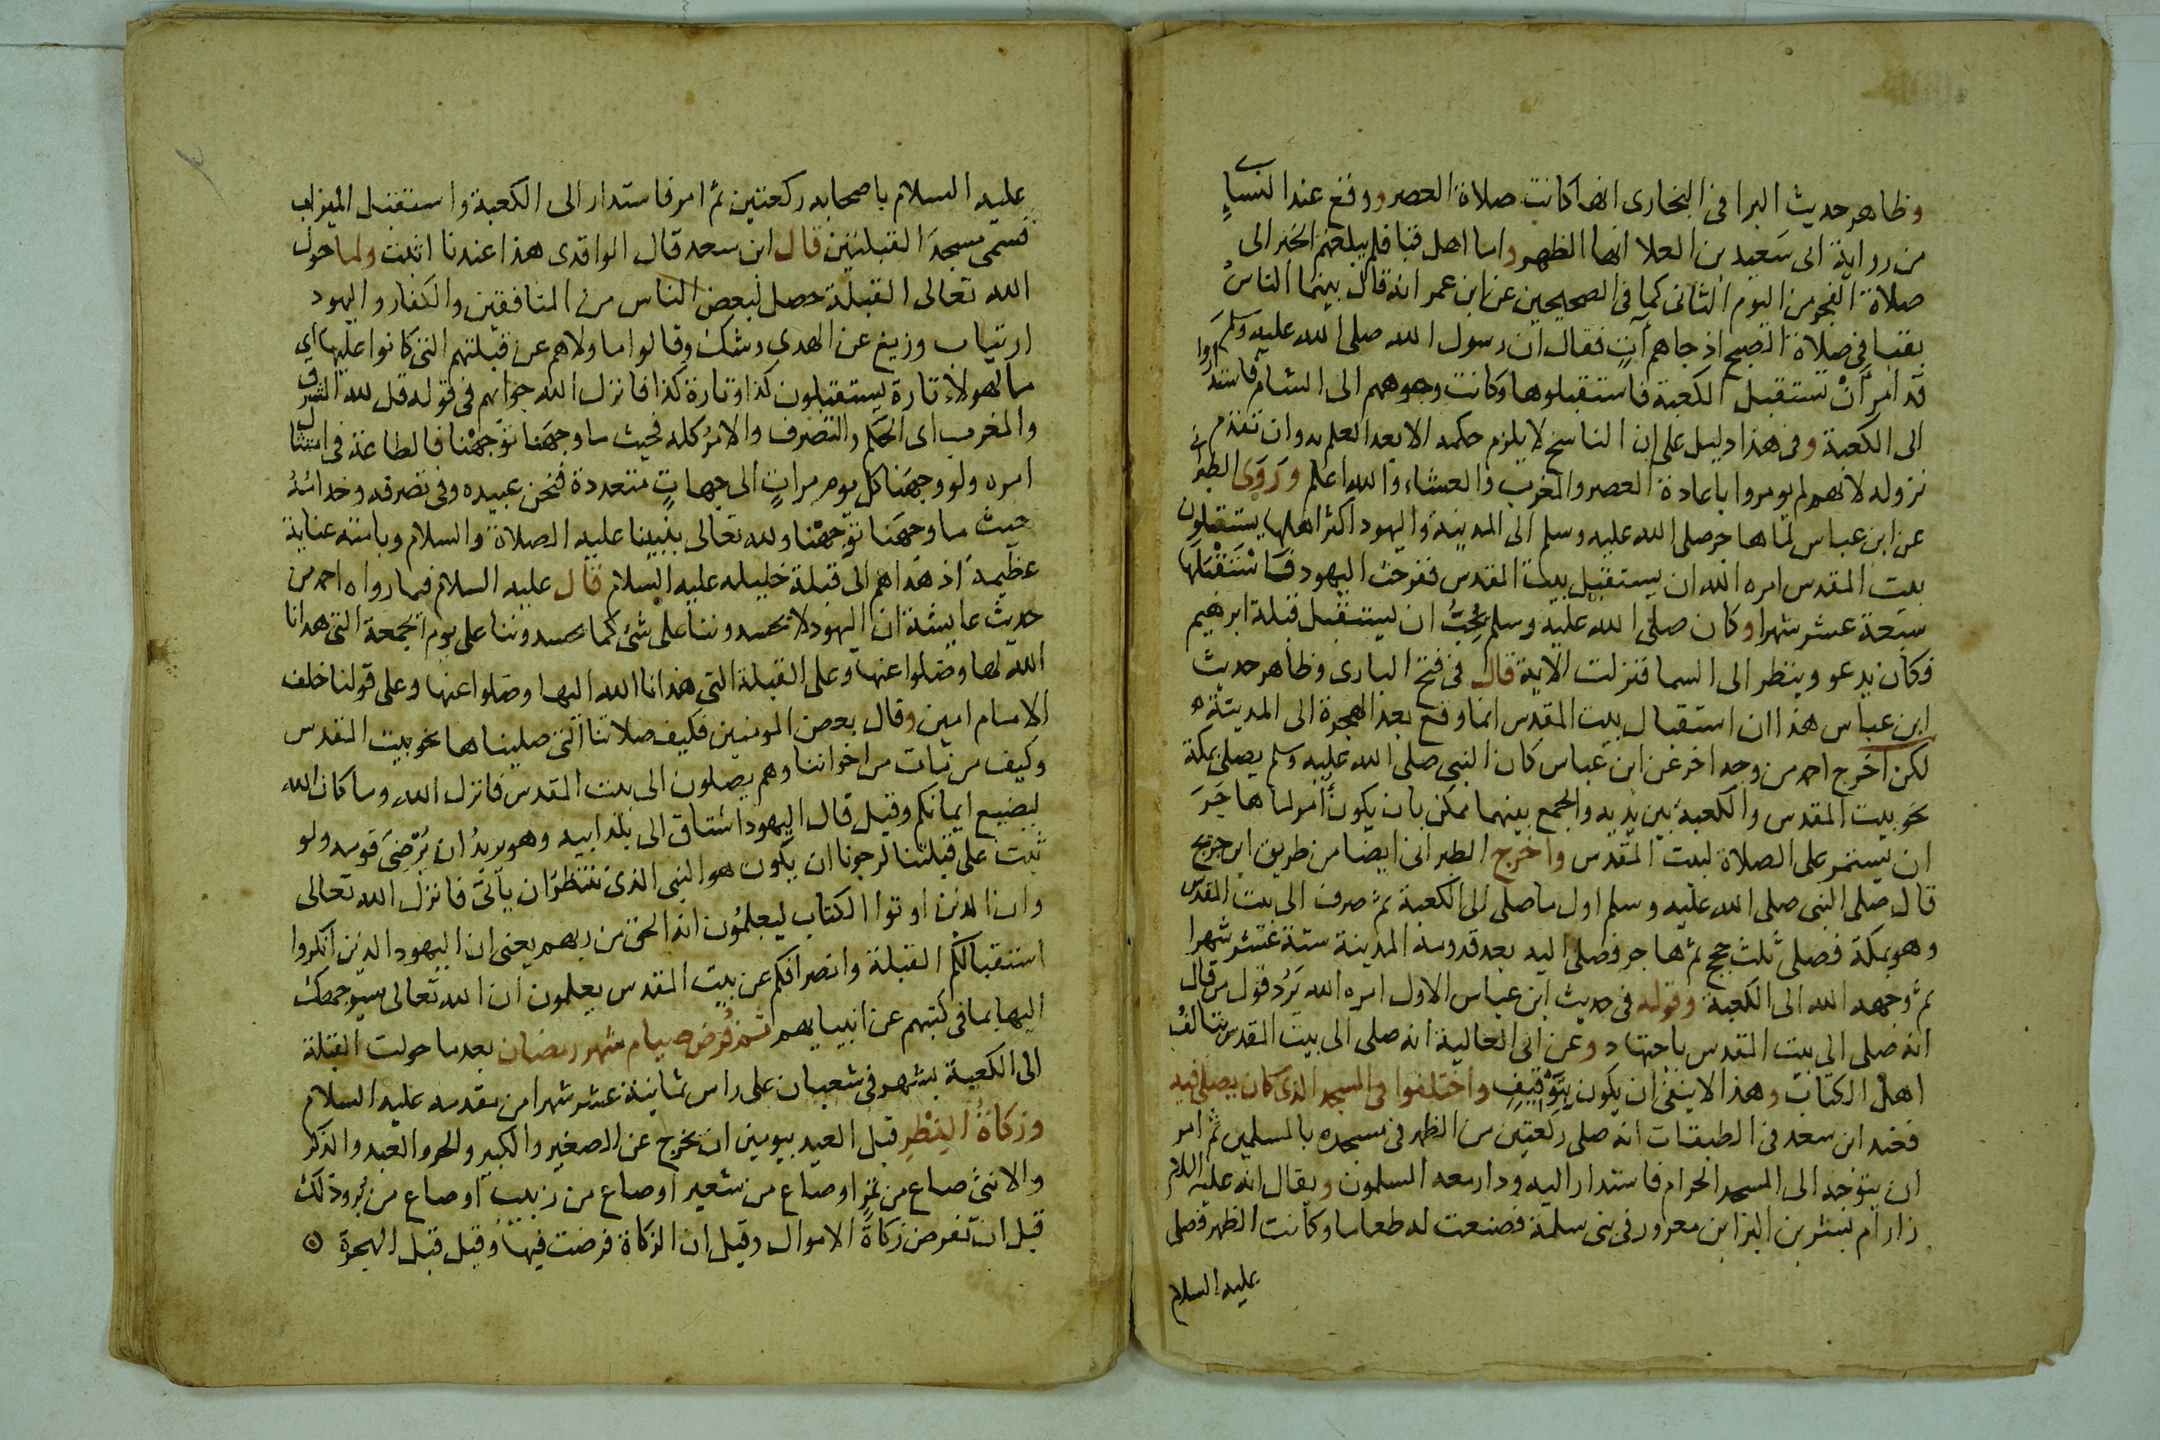 وظاهر حديث البرا فى البخارى انها كانت صلاة العصر ووقع عند النساي
من رواية ابى سَعيد بن العلا انها الظهر واما اهل قبا فلم يبلغهم الخبر الى
صلاة الفجر من اليوم الثانى كما فى الصحيحين عن ابن عمر انه قال بينما الناسُ
بقبا فى صلاة الصبح اذ جاهم آتٍ فقال ان رسول الله صلى الله عليه وسلم
قد امر أنْ تستقبل الكعبة فاستقبلوها وكانت وجوههم الى الشام فاستداروا
الى الكعبة وفى هذا دليل على ان الناسخ لا يلزم حكمه الا بعد العلم به وان تقدم
نزوله لانهم لم يومروا باعادة العصر والمغرب والعشاء والله اعلم ورَوَى الطبرانى
عن ابن عباس لما هاجر صلى الله عليه وسلم الى المدينة واليهود اكثر اهلها يستقبلون
بيت المقدس امره الله ان يستقبل بيت المقدس ففرحت اليهود فَاسْتَقْبَلَها
سَبعة عشر شهرا وكان صلى الله عليه وسلم يُحِبُّ ان يستقبل قبلة ابرهيم
فكان يدعو وينظر الى السما فنزلت الآية قال فى فتح البارى وظاهر حديث
ابن عباس هذا ان استقبال بيت المقدس انما وقع بعد الهجرة الى المدينة
لكن اخرج احمد من وجه اخر عن ابن عباس كان النبى صلى الله عليه وسلم يصلى بمكة
نحو بيت المقدس والكعبة بين يديه والجمع بينهما ممكن بان يكون أُمر لما هاجَرَ
ان يستمر على الصلاة لبيت المقدس واخرج الطبرانى ايضا من طريق ابن جريج
قال صلى النبى صلى الله عليه وسلم اول ما صلى الى الكعبة ثم صرف الى بيت المقدس
وهو بمكة فصلى ثلث حجج ثم هاجر فصلى اليه بعد قدومه المدينة ستة عشر شهرا
ثم وجهه الله الى الكعبة وقوله فى حديث ابن عباس الاول امره الله يَرُد قول من قال
انه صلى الى بيت المقدس باجتهاد وعن ابى العالية انه صلى الى بيت المقدس يتالفُ
اهل الكتاب وهذا لا ينفى ان يكون بِتَوْقِيفٍ واختلفوا فى المسجد الذى كان يصلى فيه
فعند ابن سعد فى الطبقات انه صلى ركعتين من الظهر فى مسجده بالمسلمين ثم امر
ان يتوجه الى المسجد الحرام فاستدار اليه ودار معه المسلمون ويقال انه عليه السلام
زار ام بشر بن البرا بن معرور فى بنى سلمة فصنعت له طعاما وكانت الظهر فصلى
عليه السلام
عليه السلام باصحابه ركعتين ثم امر فاستدار الى الكعبة واستقبل الميزاب
فسمى مسجدَ القبلتين قال ابن سعد قال الواقدى هذا عندنا اثبت ولما حول
الله تعالى القبلة حصل لبعض الناس من المنافقين والكفار واليهود
ارتياب وزيغ عن الهدى وشك وقالوا ما ولاهم عن قبلتهم التى كانوا عليها اي
ما لهولاء تارة يستقبلون كذا وتارة كذا فانزل الله جوابهم فى قوله قل لله المشرق
والمغرب اى الحكم والتصرف والامر كله فحيث ما وجهنا توجهْنا فالطاعة فى امتثال
امره ولو وجهَنا كل يوم مراتٍ الى جهاتٍ متعددة فنحن عبيده وفى تصرفه وخدامُهُ
حيث ما وجهَنا توَجهْنا ولله تعالى بنبينا عليه الصلاة والسلام وبامته عناية
عظيمة اذ هداهم الى قبلة خليله عليه السلام قال عليه السلام فيما رواه احمد من
حديث عايشة ان اليهود لا يحسدوننا على شئ كما يحسدوننا على يوم الجمعة التى هدانا
الله لها وضلوا عنها وعلى القبلة التى هدانا الله اليها وضلوا عنها وعلى قولنا خلف
الامام امين وقال بعض المومنين فكيف صلاتنا التى صليناها نحو بيت المقدس
وكيف من مات من اخواننا وهم يصلون الى بيت المقدس فانزل الله وما كان الله
ليضيع ايمانكم وقيل قال اليهود اشتاق الى بلد ابيه وهو يريدُ ان يُرْضِىَ قومه ولو
ثبت على قبلتنا لرجونا ان يكون هو النبى الذى ننتظر ان ياتى فانزل الله تعالى
وان الذين اوتوا الكتاب ليعلمُون انه الحق من ربهم يعنى ان اليهود الذين انكروا
استقبالكم القبلة وانصرافكم عن بيت المقدس يعلمون ان الله تعالى سيوجهك
اليها بما فى كتبهم عن انبيايهم ثم فُرض صيام شهر رمضان بعد ما حولت القبلة
الى الكعبة بشهر فى شعبان على راس ثمانية عشر شهرا من مقدمه عليه السلام
وزكاةُ الفِطْرِ قبل العيد بيومين ان يخرج عن الصغير والكبير والحر والعبد والذكر
والانثى صاع من تمرٍ او صاع من شعير او صاع من زبيب او صاع من بُر وذلك
قبل ان تفرض زكاةُ الاموال وقيل ان الزكاة فرضت فيها وقيل قبل الهجرة